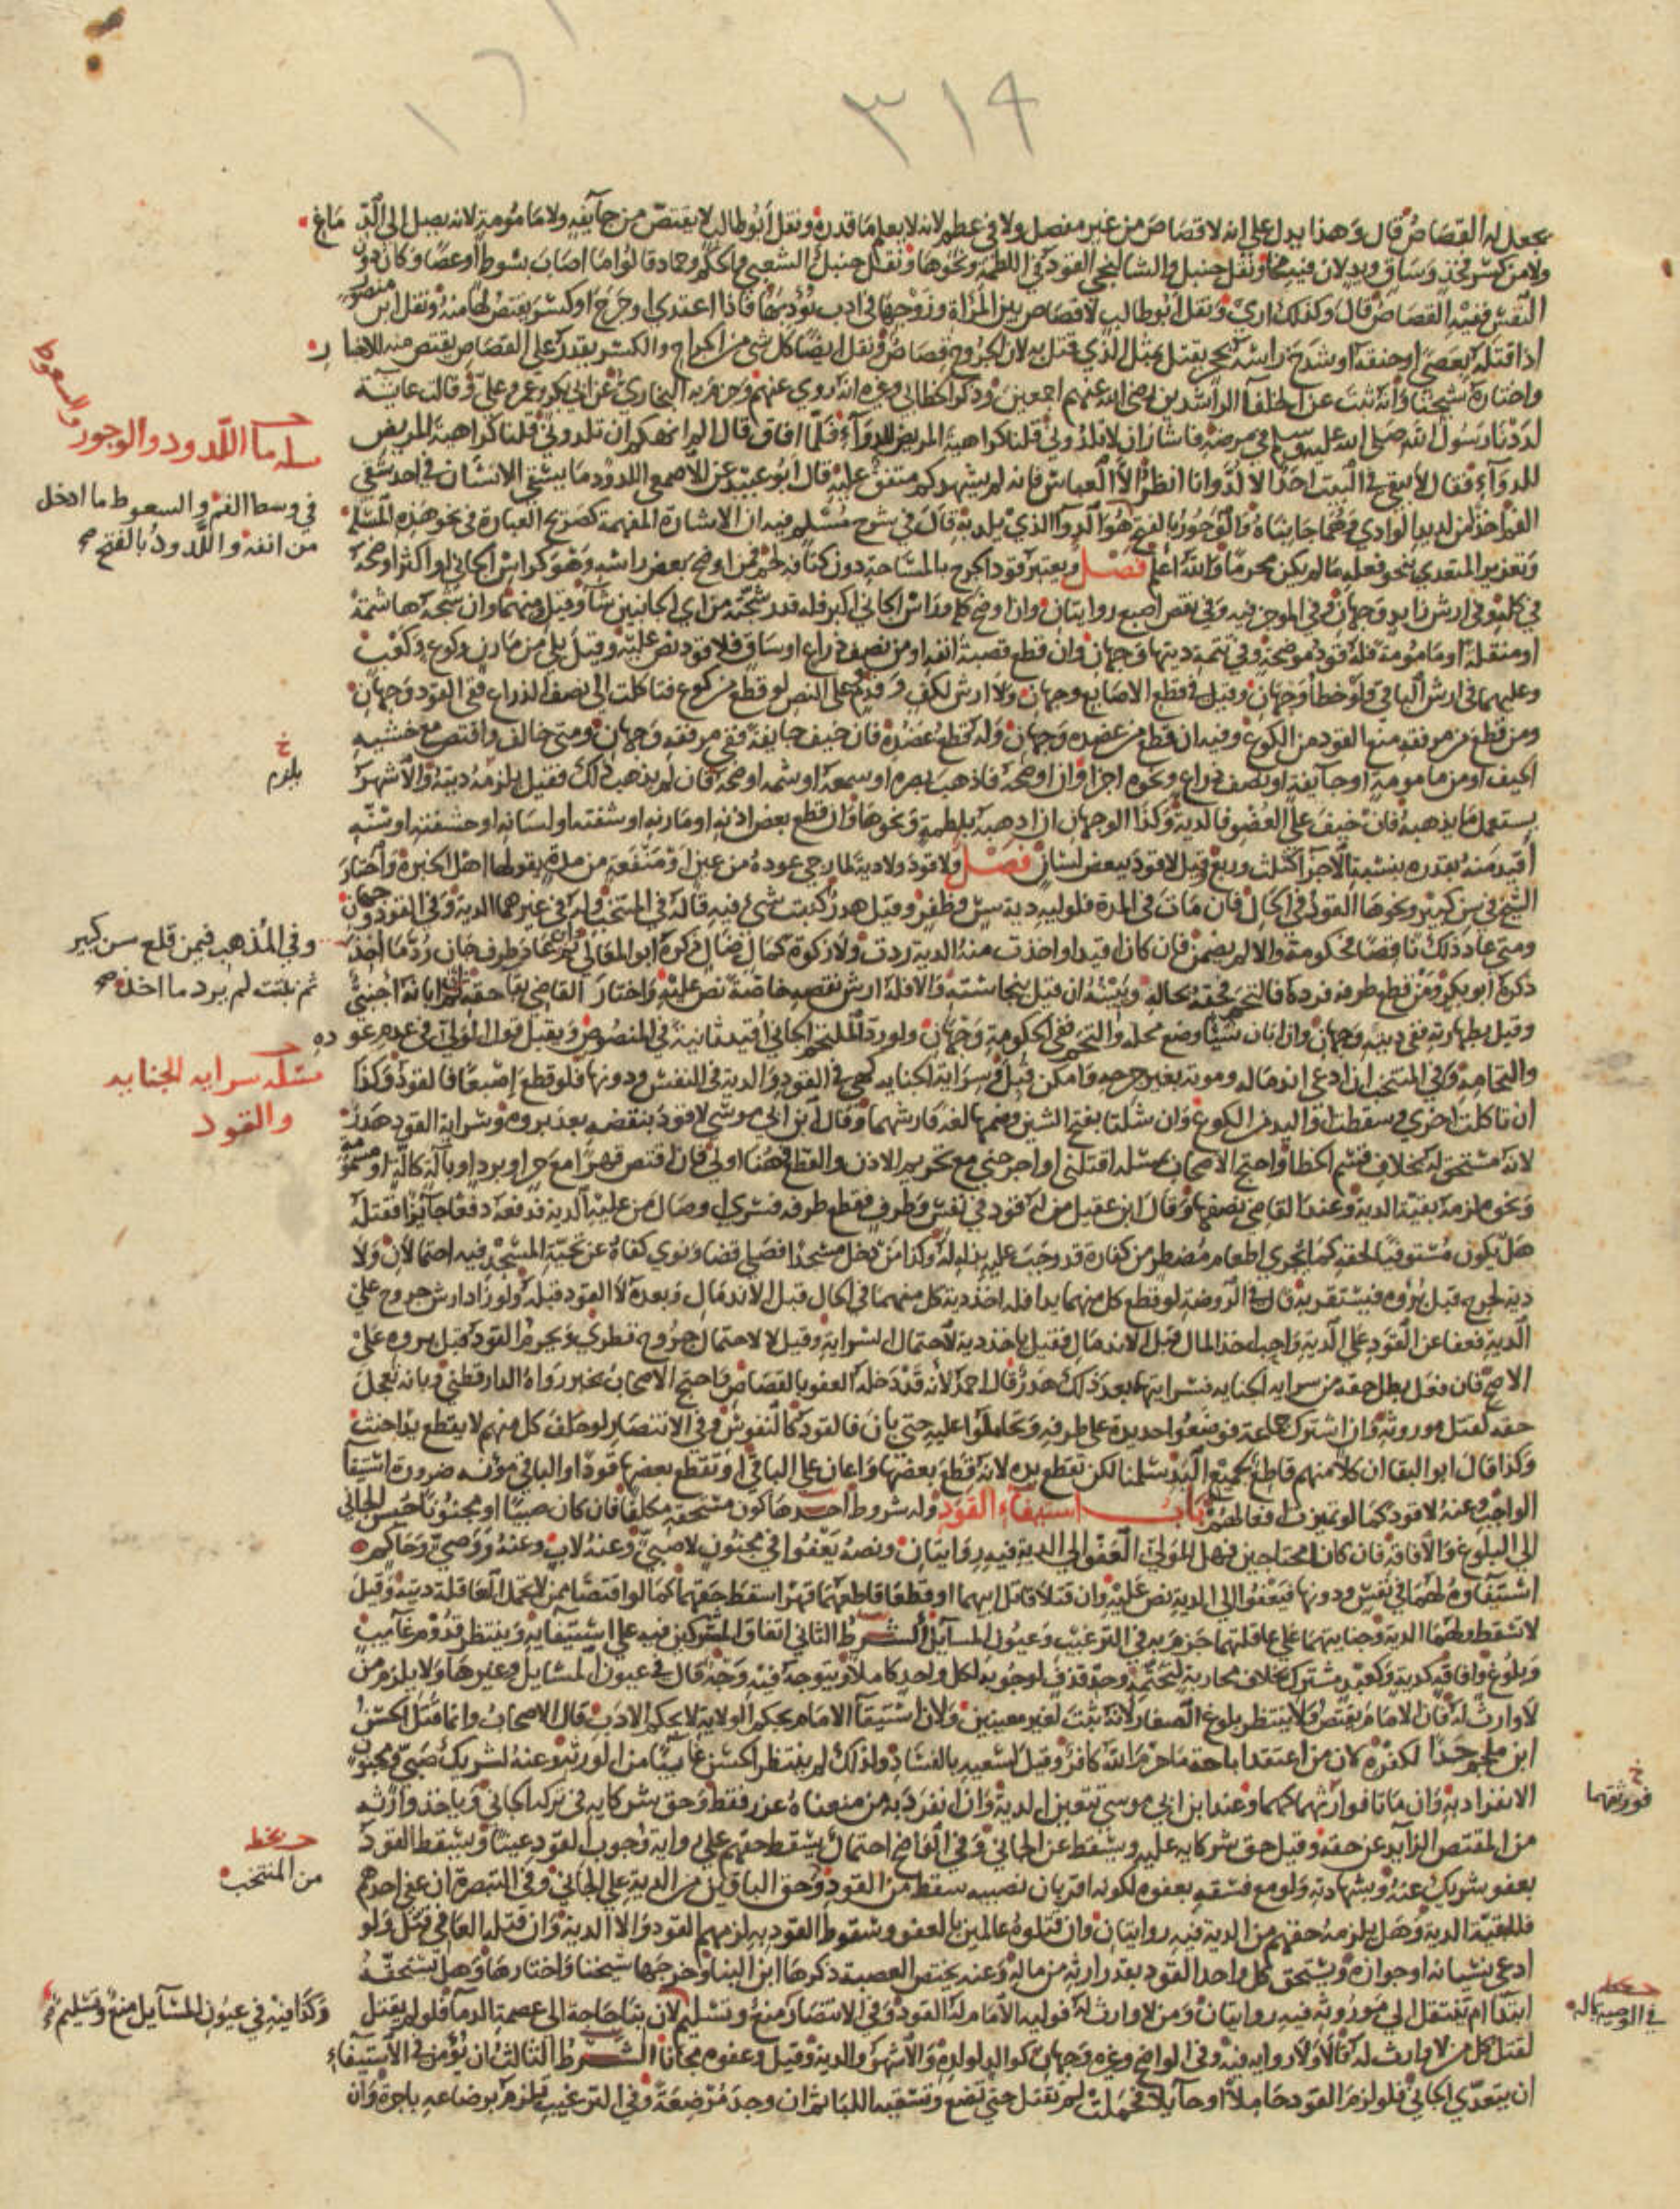 ٣١٩
يجعل له القصاص قال وهذا يدل على انه لا قصاص من غير مفصل ولا في عظم لانه لا يعلم ما قدره ونقل ابو طالب لا يقتص من جآئفه ولا مامومة لانه يصل الى الدماغ
ولا من كسر فخذ وساق ويد لان فيه مخا ونقل حنبل والشالنجي القود في اللطمة ونحوها ونقل حنبل والشعبي والحكم وحماد قالوا ما اصاب بسوط او عصا وكان دون
النفس ففيه القصاص قال وكذلك ارى ونقل ابو طالب لا قصاص بين المراة وزوجها في ادب يؤدبها فاذا اعتدى او جرح او كسر يقتص لها منه ونقل ابن منصور
اذا قتله بعصى او خنقه او شدخ راسه بحجر يقتل بمثل الذي قتل به لان الجروح قصاص ونقل ايضا كل شي من الجراح والكسر يقدر على القصاص يقتص منه للاخبار
واختاره شيخنا وانه ثبت عن الخلفآ الراشدين رضي الله عنهم اجمعين وذكر الخطابي وغيره انه روي عنهم وجزم به البخاري عن ابي بكر وعمر وعلي وقالت عايشه
لددنا رسول الله صلى الله عليه وسلم في مرضه فاشار ان لا تلدوني قلنا كراهية المريض للدوآء فلما افاق قال الم انهكم ان تلدوني قلنا كراهية المريض
للدوآء فقال لا يبقى في البيت احد الا لد وانا انظر الا العباس فانه لم يشهدكم متفق عليه قال ابو عبيد عن الاصمعي اللدود ما يسقى الانسان في احد شقي
الفم اخذ من لديدا الوادي وهما جانباه والوجور بالفتح هو الدوآ الذي يلد به قال في شرح مسلم فيه ان الاشارة المفهمة كصريح العبارة في نحو هذه المسله
وتعزير المتعدي بنحو فعله ما لم يكن محرما والله اعلم فصل ويعتبر قود الجرح بالمساحة دون كثافة لحم فمن اوضح بعض راسه وهو كراس الجاني او اكثر اوضحه
في كله وفي ارش زايد وجهان وفي الموجز فيه وفي نقص اصبع روايتان وان اوضح كله وراس الجاني اكبر فله قدر شجته من اي الجانبين شآ وقيل ومنهما وان شجه هاشمة
او منقلة او مامومة فله قود موضحة وفي تتمة ديتها وجهان وان قطع قصبة انفه او من نصف ذراع او ساق فلا قود نص عليه وقيل بلى من مارن وكوع وكعب
وعليهما في ارش الباقي ولو خطأ وجهان وقيل في قطع الاصابع وجهان ولا ارش لكف وقدم على النص لو قطع من كوع فتاكلت الى نصف الذراع ففي القود وجهان
ومن قطع من مرفقه منع القود من الكوع وفيه ان قطع من عضده وجهان وله قطع عضده فان خيف جايفة ففي مرفقه وجهان ومتى خالف واقتص مع خشيه
الحيف او من مامومة او جآيفة او نصف ذراع ونحوه اجزا وان اوضحه فاذهب بصره او سمعه او شمه اوضحه فان لم يذهب ذلك فقيل يلزمه ديته والاشهر
يستعمل ما يذهبه فان خيف على العضو فالدية وكذا الوجهان ان اذهبه بلطمة ونحوها وان قطع بعض اذنه او مارنه او شفته او لسانه او حشفته او سنه
اقيد منه بقدره بنسبة الاجزآ كثلث وربع وقيل لا قود ببعض لسان فصل ولا قود ولا دية لما رجي عوده من عين او منفعة من مدة يقولها اهل الخبرة واختار
الشيخ في سن كبير ونحوها القود في الحال فان مات في المدة فلوليه دية سن وظفر وقيل هدر كنبت شيء فيه قاله في المنتخب وله في غيرهما الدية وفي القود وجهان
ومتى عاد ذلك ناقصا فحكومة والا لم يضمن فان كان اقيد او اخذت منه الدية ردت ولا زكوة كمال ضال ذكره ابو المعالي ثم ان عاد طرف جان رد ما اخذ
ذكره ابو بكر ومن قطع طرفه فرده فالتحم فحقه بحاله ويبينه ان قيل بنجاسته والا فله ارش نقصه خاصة نص عليه واختار القاضي بقا حقه ثم ان ابانه اجنبي
وقيل بطهارته ففي ديته وجهان وان ابان شيئا وضع محله والتحم ففي الحكومة وجهان ولو رد الملتحم الجاني اقيد ثانية في المنصوص ويقبل قول الولي في عدم عوده
والتحامه وفي المنتخب ان ادعى اندماله وموته بغير جرحه وامكن قبل وسراية الجناية كهي في القود والدية في النفس ودونها فلو قطع إصبعا فالقود وكذا
ان تاكلت اخرى وسقطت او اليد من الكوع وان شلتا بفتح الشين وضمها لغه فارشهما وقال ابن ابي موسى لا قود بنقضه بعد بروه وسراية القود هدر
لانه مستحق له بخلاف قسم الخطا واحتج الاصحاب بمسئله اقتلني او اجرحني مع تحريم الاذن والقطع فهنا اولى فان اقتص قهرا مع حر او برد او بآلة كالة او مسمومة
ونحوه لزمه بقية الدية وعند القاضي نصفها وقال ابن عقيل من له قود في نفس وطرف فقطع طرفه فسرى او صال من عليه الدية فدفعه دفعا جآئزا فقتله
هل يكون مستوفيا لحقه كما يجزي اطعام مضطر من كفارة قد وجبت عليه بذله له وكذا من دخل مسجدا فصلى قضا ونوى كفاه عن تحية المسجد فيه احتمالان ولا
دية لجرح قبل بُرؤه فيستقر به قال في الروضة لو قطع كل منهما يدا فله اخذ دية كل منهما في الحال قبل الاندمال وبعده لا القود قبله ولو زاد ارش جروح على
الدية فعفا عن القود على الدية واحب اخذ المال قبل الاندمال فقيل ياخذ دية لاحتمال السراية وقيل لا لاحتمال جروح تطري ويحرم القود قبل بروه على
الاصح فان فعل بطل حقه من سراية الجناية فسرايتها بعد ذلك هدر قال احمد لانه قد دخله العفو بالقصاص واحتج الاصحاب بخبر رواه الدارقطني وبانه تعجل
حقه كقتل موروثه وان اشترك جماعة فوضعوا حديدة على طرفه وتحاملوا عليه حتى بان فالقود كالنفوس وفي الانتصار لو حلف كل منهم لا يقطع يدا حنث
وكذا قال ابو البقا ان كلا منهم قاطع لجميع اليد سلمنا لكن تقطع يده لانه قطع بعضها واعان على الباقي او تقطع بعضها قودا والباقي مؤنه ضرورة استيفا
الواجب وعنه لا قود كما لو تميزت افعالهم باب استيفآء القود وله شروط احدها كون مستحقه مكلفا فان كان صبيا او مجنونا حبس الجاني
الى البلوغ والافاقة فان كانا محتاجين فهل للولي العفو الى الدية فيه روايتان ونصه يعفوا في مجنون لا صبي وعنه لاب وعنه ووصي وحاكم
استيفآوه لهما في نفس ودونها فيعفوا الى الدية نص عليه وان قتلا قاتل ابيهما او قطعا قاطعهما قهرا سقط حقهما كما لو اقتصا ممن لا تحمل العاقلة ديته وقيل
لا تسقط ولهما الدية وجنايتهما على عاقلتهما جزم به في الترغيب وعيون المسآيل الشرط الثاني اتفاق المشتركين فيه على استيفآيه وينتظر قدوم غآيب
وبلوغ وافاقة كدية وكعبد مشترك بخلاف محاربة لتحتمه وحد قذف لوجوبه لكل واحد كاملا ويتوجه فيه وجه قال في عيون المسايل وغيرها ولا يلزم من
لا وارث له فان الامام يقتص ولا ينتظر بلوغ الصغار لانه ثبت لغير معينين ولان استيفآ الامام بحكم الولاية لا بحكم الارث قال الاصحاب وانما قتل الحسن
ابن ملجم حدا لكفره لان من اعتقد اباحة ما حرم الله كافر وقيل لسعيه بالفساد ولذلك لم ينتظر الحسن غايبا من الورثة وعنه لشريك صبي ومجنون
الانفراد به وان ماتا فوارثهما كهما وعند ابن ابي موسى تتعين الدية وان انفرد به من منعناه عزر فقط وحق شركايه في تركه الجاني وياخذ وارثه
من المقتص الزآيد عن حقه وقيل حق شركايه عليه ويسقط عن الجاني وفي الواضح احتمال يسقط حقهم على رواية وجوب القود عينا ويسقط القود
بعفو شريك عنه وبشهادته ولو مع فسقه بعفوه لكونه اقر بان نصيبه سقط من القود وحق الباقين من الدية على الجاني وفي التبصرة ان عفى احدهم
فللبقية الدية وهل يلزمه حقهم من الدية فيه روايتان وان قتلوه عالمين بالعفو وسقوط القود به لزمهم القود والا الدية وان قتله العافي قتل ولو
ادعى نسيانه او جوازه ويستحق كل واحد القود بقدر ارثه من ماله وعنه يختص العصبة ذكرها ابن البنا وخرجها شيخنا واختارها وهل يستحقه
ابتدآ ام تنتقل الى موروثه فيه روايتان ومن لا وارث له فوليه الامام له القود وفي الانتصار منع وتسليم لان بنا حاجة الى عصمة الدمآ فلو لم يقتل
لقتل كل من لا وارث له قالا ولا رواية فيه وفي الواضح وغيره وجهان كوالد لولده والاشهر والدية وقيل وعفوه مجانا الشرط الثالث ان يؤمن في الاستيفآء
ان يتعدى الجاني فلو لزم القود حاملا او حآيلا فحملت لم تقتل حتى تضع وتسقيه اللبا ثم ان وجد مرضعة وفي الترغيب تلزم برضاعه باجرة وان
مسله ما اللدود والوجور والسعوط
في وسط الفم والسعوط ما ادخل
من انفه واللدود بالفتح صح
خ
يلزم
وفي المذهب فيمن قلع سن كبير
ثم نبتت لم يرد ما اخذ صح
مسئله سراية الجنايه
والقود
خ
فورثتهما
من المنتخب
وكذا فيه في عيون المسآيل منع وتسليم